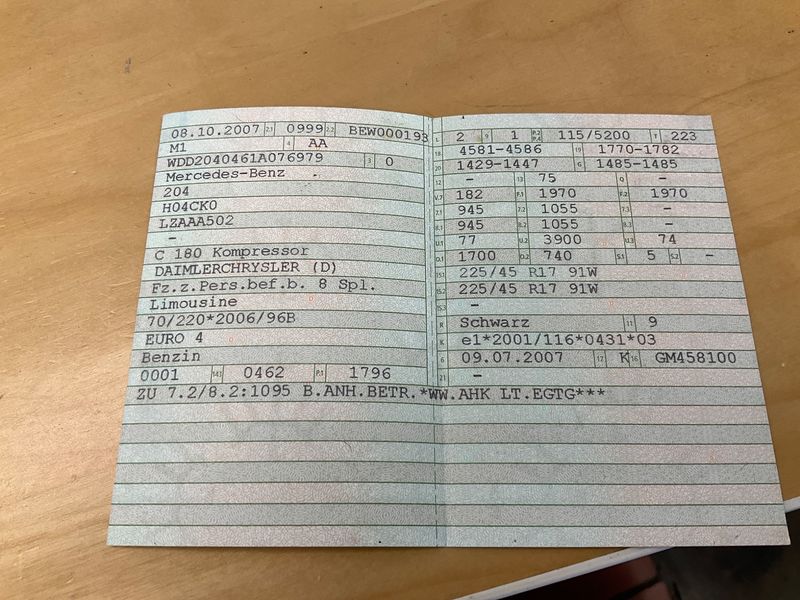 08.10.2007 2.1 0999 2.2 BEW000193
M1 4 AA
WDD2040461A076979 3 0
Mercedes-Benz
204
H04CK0
LZAAA502
-
C 180 Kompressor
DAIMLERCHRYSLER (D)
Fz.z.Pers.bef.b. 8 Spl.
Limousine
70/220*2006/96B
EURO 4
Benzin
0001 14.1 0462 P.1 1796
ZU 7.2/8.2:1095 B.ANH.BETR.*WW.AHK LT.EGTG***
L 2 9 1 P.2 P.4 115/5200 T 223
18 4581-4586 19 1770-1782
20 1429-1447 G 1485-1485
12 - 13 75 Q -
V.7 182 F.1 1970 F.2 1970
7.1 945 7.2 1055 7.3 -
8.1 945 8.2 1055 8.3 -
U.1 77 U.2 3900 U.3 74
O.1 1700 O.2 740 S.1 5 S.2 -
15.1 225/45 R17 91W
15.2 225/45 R17 91W
15.3 -
R Schwarz 11 9
K e1*2001/116*0431*03
6 09.07.2007 17 K 16 GM458100
21 -